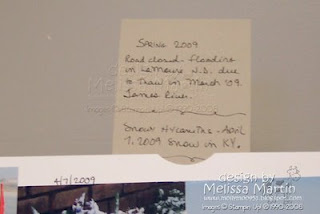 SPRING 2009
Road closed - flooding
in LaMoure N.D. due
to thaw in March '09.
James River.
Snow Hyacinths - April
7, 2009 Snow in KY.
4/7/2009
design by
Melissa Martin
images © Stampin' Up! © 1990-2008